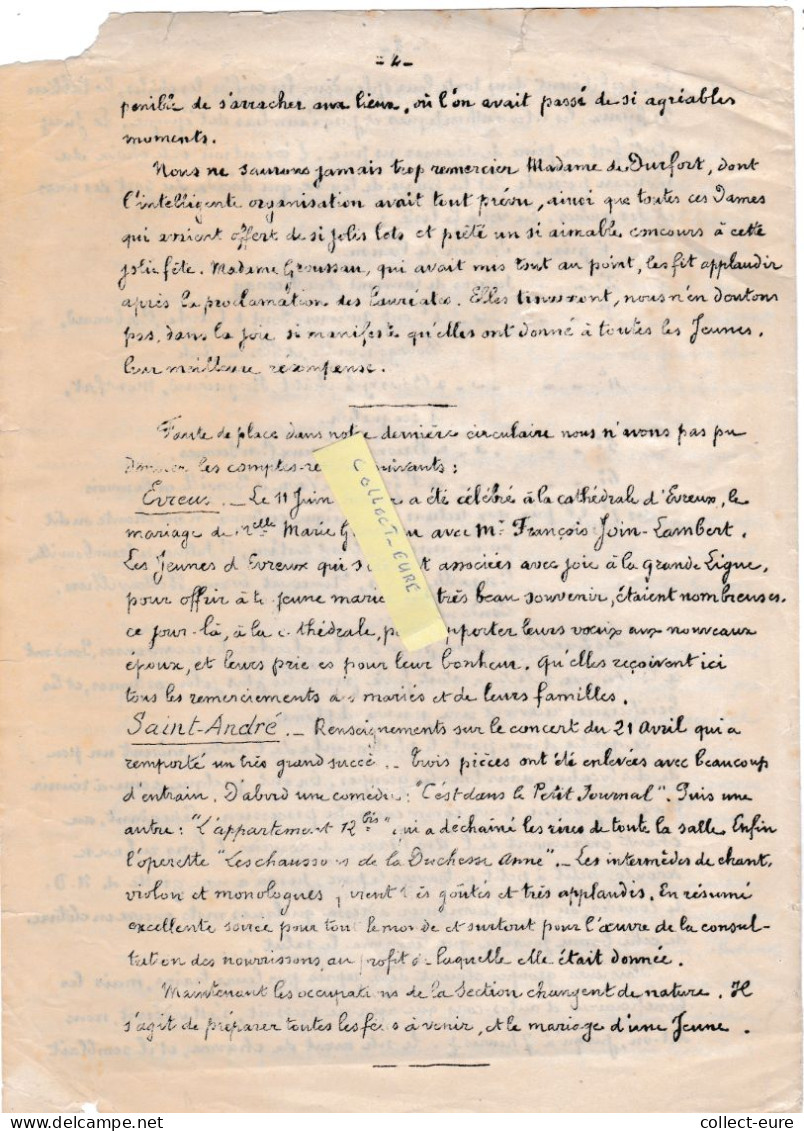 - 2 -
penible de s'arracher aux lieux, où l'on avait passé de si agréables
moments.
Nous ne saurons jamais trop remercier Madame de Durfort, dont
l'intelligente organisation avait tout prévu, ainsi que toutes ces Dames
qui avaient offert de si jolis lots et prêté un si aimable concours à cette
jolie fête. Madame Groussau, qui avait mis tout au point, les fit applaudir
après la proclamation des lauréates. Elles trouveront, nous n'en doutons
pas, dans la joie si manifeste qu'elles ont donné à toutes les Jeunes,
leur meilleure récompense.
Faute de place dans notre dernière circulaire nous n'avons pas pu
donner les comptes-re suivants :
Evreux. - Le 11 Juin a été célébré à la cathédrale d'Evreux, le
mariage de Melle Marie G avec Mr François Join-Lambert.
Les Jeunes d'Evreux qui s associées avec joie à la grande Ligue,
pour offrir à la jeune mariée très beau souvenir, étaient nombreuses
ce jour-là, à la cathédrale, p apporter leurs vœux aux nouveaux
époux, et leurs prières pour leur bonheur. qu'elles reçoivent ici
tous les remerciements des mariés et de leurs familles.
Saint-André. - Renseignements sur le concert du 21 Avril qui a
remporté un très grand succès. - Trois pièces ont été enlevées avec beaucoup
d'entrain. D'abord une comédie : "C'est dans le Petit Journal". Puis une
autre : "L'appartement 12 bis" qui a déchaîné les rires de toute la salle. Enfin
l'opérette "Les chaussons de la Duchesse Anne". - Les intermèdes de chant,
violon et monologues furent très goûtés et très applaudis. En résumé
excellente soirée pour tout le monde et surtout pour l'œuvre de la consul-
tation des nourrissons au profit de laquelle elle était donnée.
Maintenant les occupations de la Section changent de nature. Il
s'agit de préparer toutes les fêtes à venir, et le mariage d'une Jeune.
COLLECT-EURE
delcampe.net
collect-eure